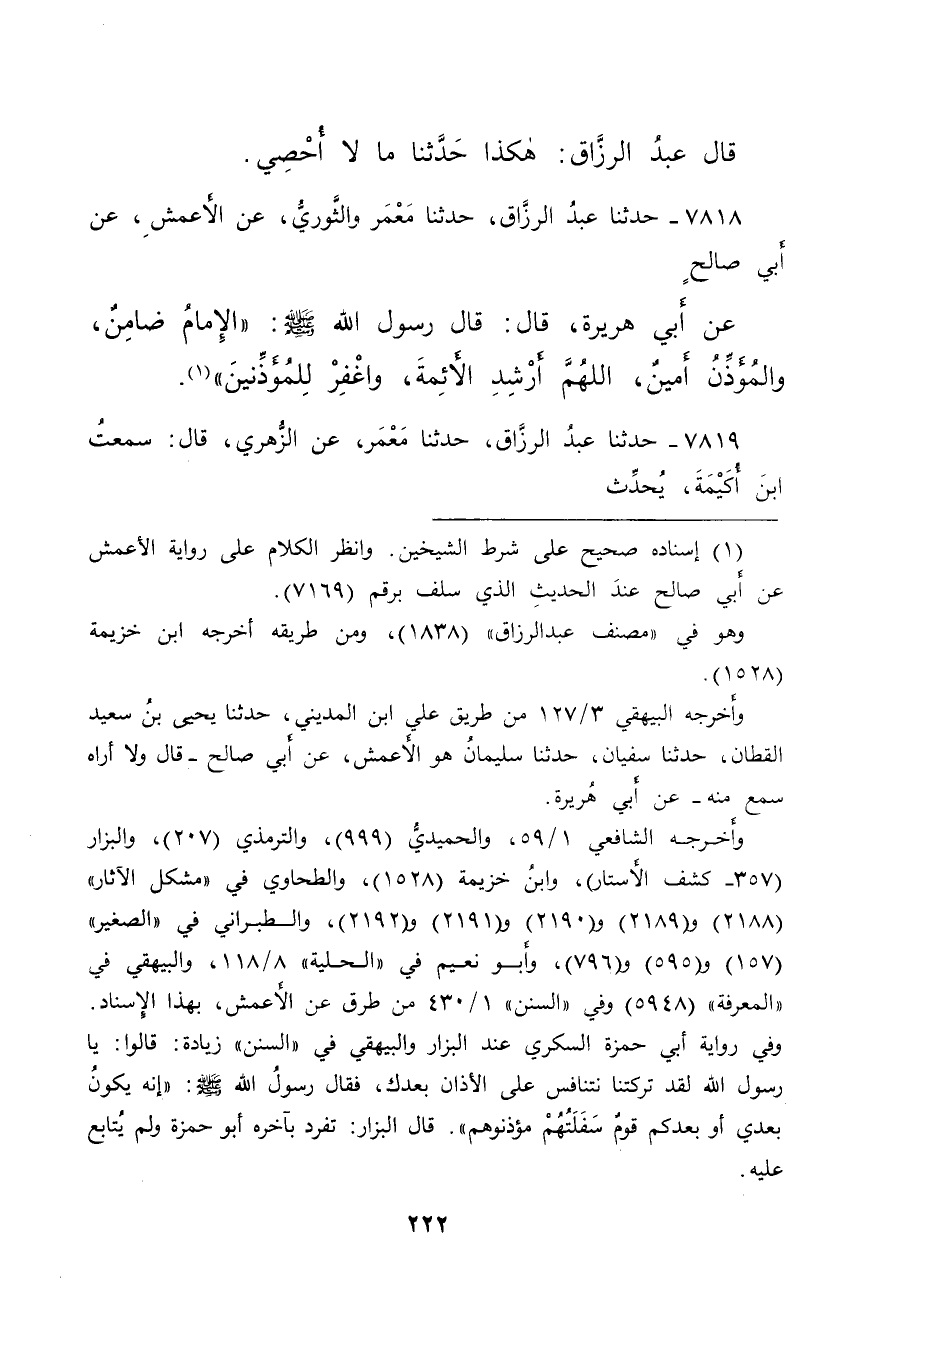 قال عبدُ الرزَّاق: هٰكذا حَدَّثنا ما لا أُحْصِي.
٧٨١٨ـ حدثنا عبدُ الرزَّاق، حدثنا مَعْمَر والثَّوريُّ، عن الأَعمشِ، عن
أَبي صالحٍ
عن أَبي هريرة، قال: قال رسول الله ﷺ: «الإِمامُ ضامِنٌ،
والمُؤَذِّنُ أَمينٌ، اللهُمَّ أَرْشِدِ الأَئِمةَ، واغْفِرْ لِلمُؤَذِّنينَ»(١).
٧٨١٩ـ حدثنا عبدُ الرزَّاق، حدثنا مَعْمَر، عن الزُّهري، قال: سمعتُ
ابنَ أُكَيْمَةَ، يُحدِّث
(١) إسناده صحيح على شرط الشيخين. وانظر الكلام على رواية الأعمش
عن أَبي صالح عندَ الحديثِ الذي سلف برقم (٧١٦٩).
وهو في «مصنف عبدالرزاق» (١٨٣٨)، ومن طريقه أخرجه ابن خزيمة
(١٥٢٨).
وأَخرجه البيهقي ١٢٧/٣ من طريق علي ابن المديني، حدثنا يحيى بنُ سعيد
القطان، حدثنا سفيان، حدثنا سليمانُ هو الأَعمش، عن أَبي صالح ـ قال ولا أراه
سمع منه ـ عن أَبي هُريرة.
وأَخرجه الشافعي ٥٩/١، والحميديُّ (٩٩٩)، والترمذي (٢٠٧)، والبزار
(٣٥٧ـ كشف الأَستار)، وابنُ خزيمة (١٥٢٨)، والطحاوي في «مشكل الآثار»
(٢١٨٨) و(٢١٨٩) و(٢١٩٠) و(٢١٩١) و(٢١٩٢)، والطبراني في «الصغير»
(١٥٧) و(٥٩٥) و(٧٩٦)، وأَبو نعيم في «الحلية» ١١٨/٨، والبيهقي في
«المعرفة» (٥٩٤٨) وفي «السنن» ٤٣٠/١ من طرق عن الأَعمش، بهذا الإِسناد.
وفي رواية أبي حمزة السكري عند البزار والبيهقي في «السنن» زيادة: قالوا: يا
رسول الله لقد تركتنا نتنافس على الأذان بعدك، فقال رسولُ الله ﷺ: «إنه يكونُ
بعدي أو بعدكم قومٌ سَفَلَتُهُمْ مؤذنوهم». قال البزار: تفرد بآخره أبو حمزة ولم يُتابع
عليه.
٢٢٢